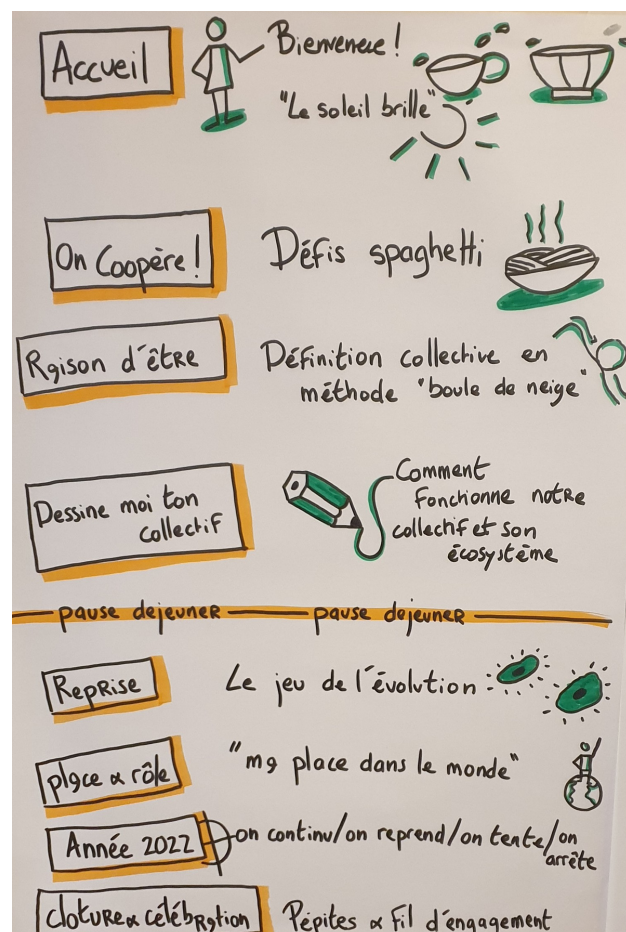 Accueil
Bienvenue !
"Le soleil brille"
On Coopère !
Défis spaghetti
Raison d'être
Définition collective en
méthode "boule de neige"
Dessine moi ton
collectif
Comment
Fonctionne notre
collectif et son
écosystème
pause dejeuner pause dejeuner
Reprise
Le jeu de l'évolution :
place & rôle
"ma place dans le monde"
Année 2022
on continu/on reprend/on tente/on
arrête
cloture & célébration
Pépites & Fil d'engagement